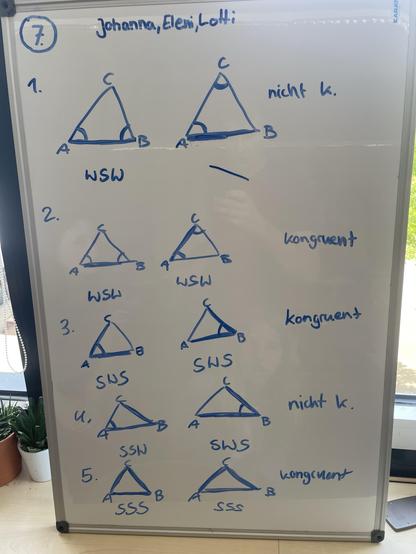 7. Johanna, Eleni, Lotti
1. C C nicht k.
A B A B
WSW
2. C C kongruent
A B A B
WSW WSW
3. C C kongruent
A B A B
SWS SWS
4. C C nicht k.
A B A B
SSW SWS
5. C C kongruent
A B A B
SSS SSS